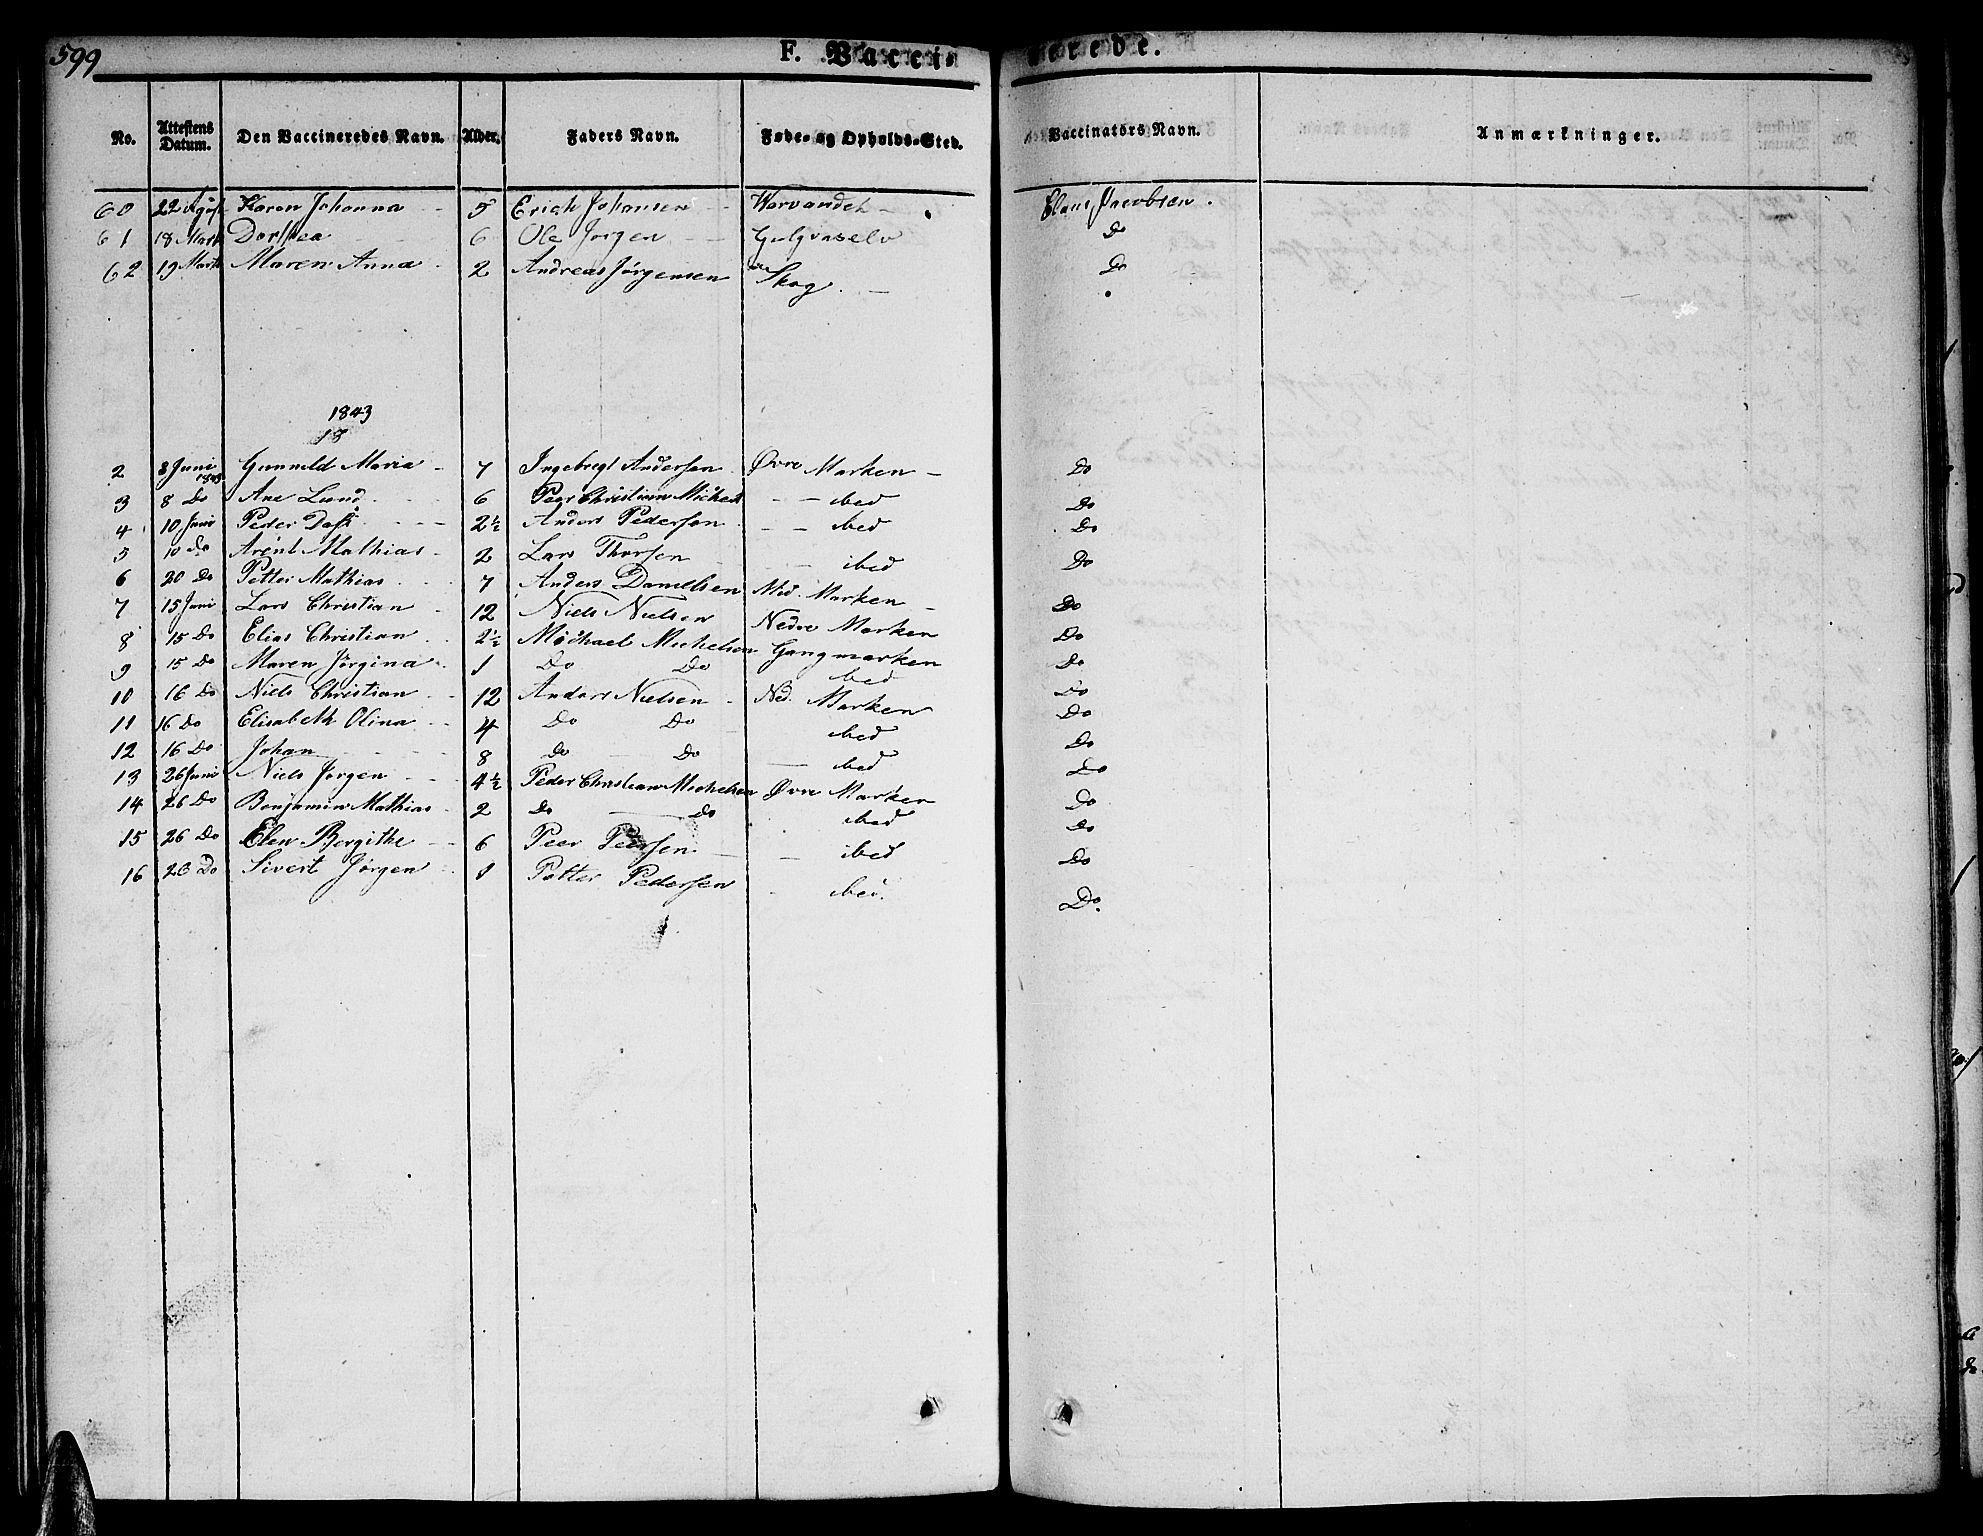 599
F. Vaccinerede.
No. Attestens Datum. Den Vaccineredes Navn. Alder. Faders Navn. Føde- og Opholds-Sted. Vaccinatörs Navn. Anmærkninger.
60 22 Karen Johanna 5 Erich Johansen Claus Jacobsen.
61 18 Marts Dorthea 6 Ole Jørgen Do
62 19 Marts Maren Anna 2 Andreas Jörgensen Skog. Do
1843
18
2 8 Juni 1843 Gunneld Maria 7 Ingebregt Andersen Øvre Marken Do
3 8 Do Ane Lund 6 Peer Christian Michels ibed Do
4 10 Juni Peder 2½ Anders Pedersen ibed Do
5 10 Do Arent Mathias 2 Lars Thorsen ibed Do
6 20 Do Petter Mathias 7 Anders Danielsen Med. Marken Do
7 15 Juni Lars Christian 12 Niels Nielsen Nedre Marken Do
8 15 Do Elias Christian 2½ Michael Michelsen Gangmarken Do
9 15 Do Maren Jörgina 1 Do Do ibed Do
10 16 Do Niels Christian 12 Anders Nielsen Ned. Marken Do
11 16 Do Elisabeth Olina 4 Do Do ibed Do
12 16 Do Johan 8 Do Do ibed Do
13 26 Juni Niels Jørgen 4½ Peder Christian Michelsen Øvre Marken Do
14 26 Do Benjamin Mathias 2 Do Do ibed Do
15 26 Do Elen Bergithe 6 Peer Pedersen ibed Do
16 26 Do Sivert Jørgen 1 Petter Pedersen ibed. Do.